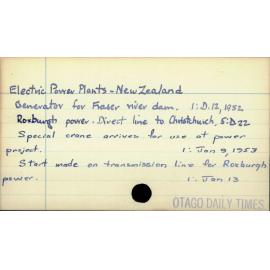 Electric Power Plants - New Zealand
Generator for Fraser river dam. 1:D.12,1952
Roxburgh power. Direct line to Christchurch, 5:D22
Special crane arrives for use at power
project. 1: Jan 9, 1953
Start made on transmission line for Roxburgh
power. 1: Jan 13
OTAGO DAILY TIMES